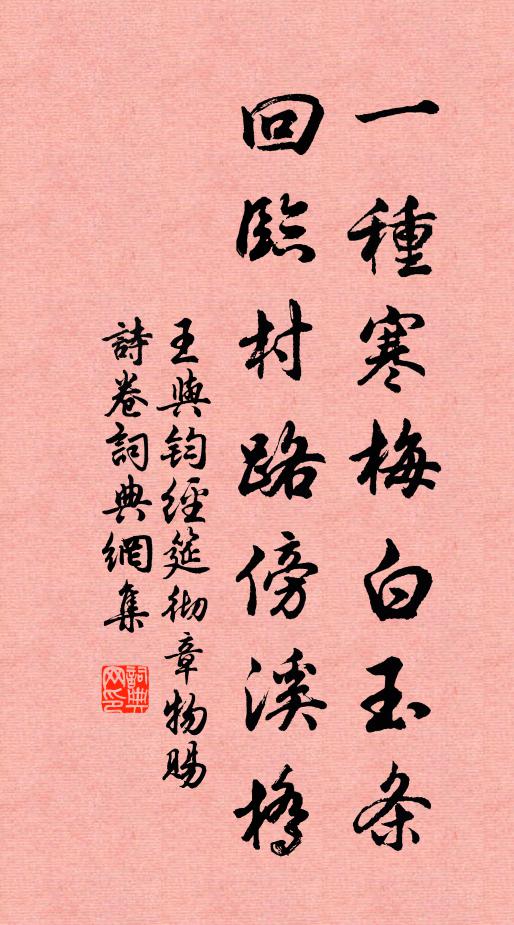 一種寒梅白玉条
回臨村路傍溪橋
王與鈞經筵彻章物賜
詩卷詞典網集
詞典網印